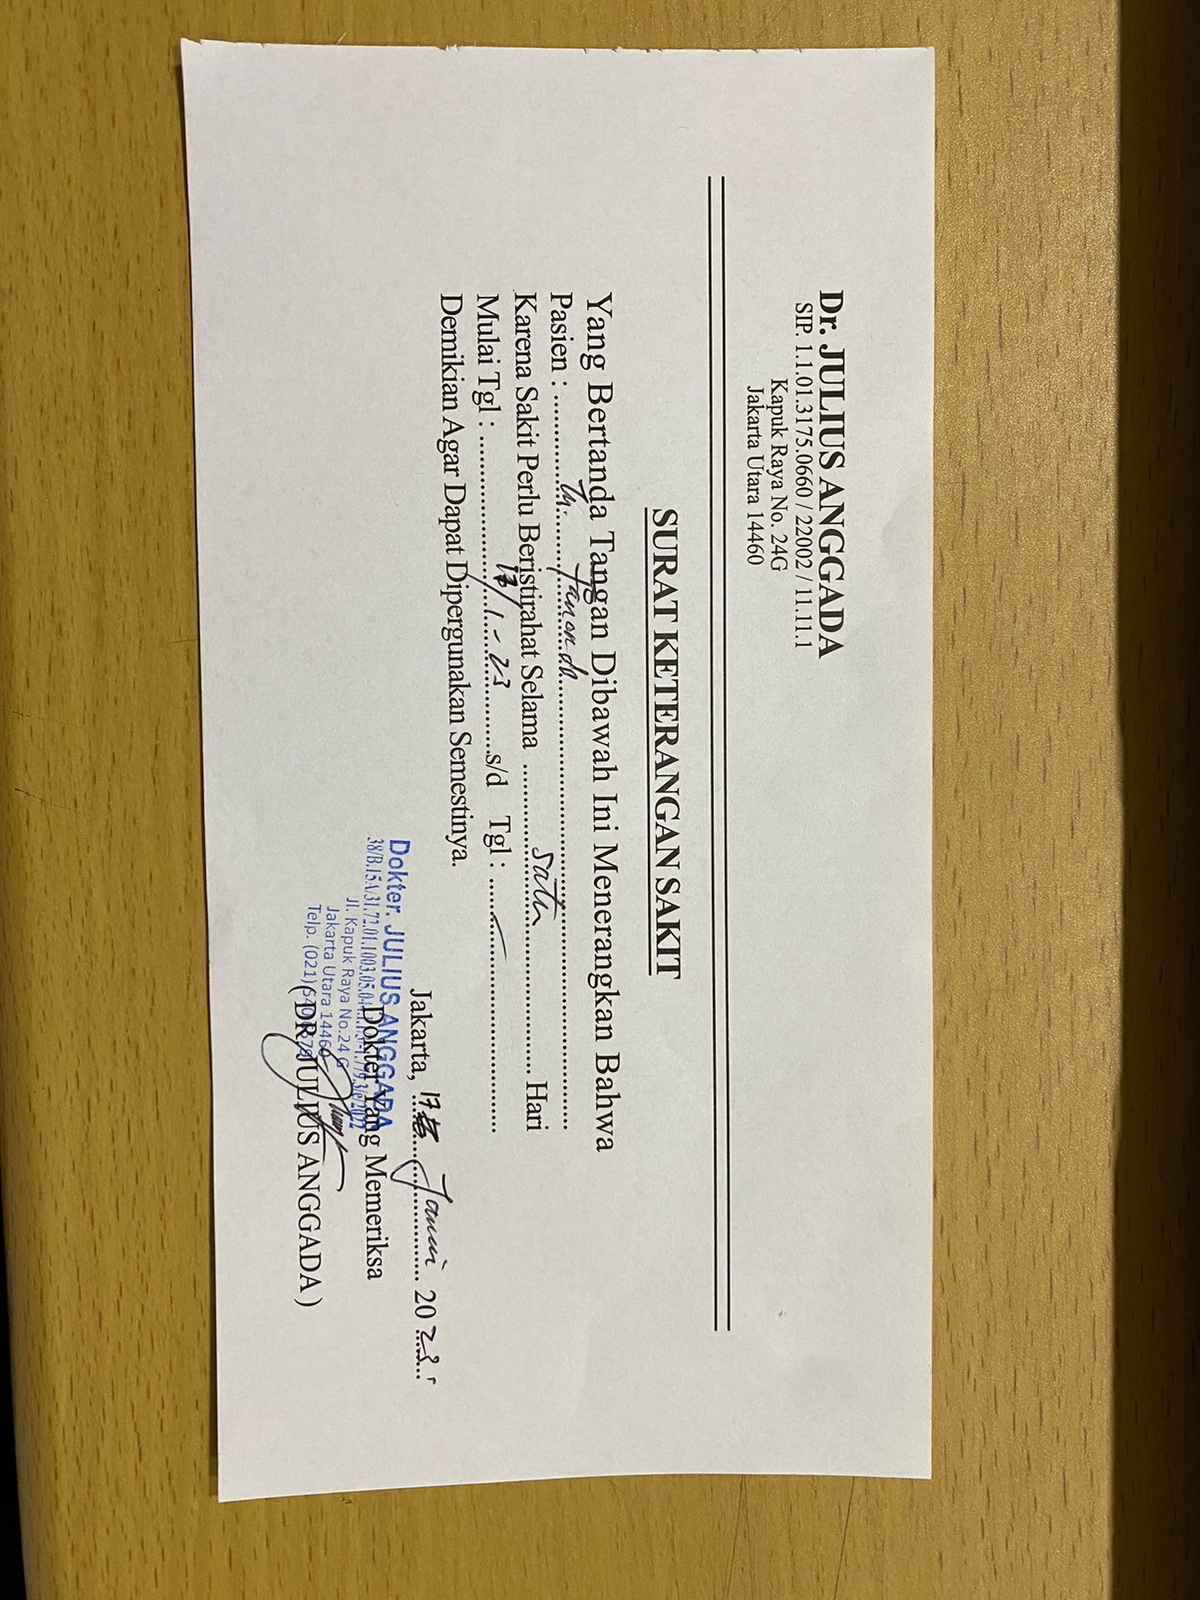 Dr. JULIUS ANGGADA
SIP. 1.1.01.3175.0660 / 22002 / 11.11.1
Kapuk Raya No. 24G
Jakarta Utara 14460
SURAT KETERANGAN SAKIT
Yang Bertanda Tangan Dibawah Ini Menerangkan Bahwa
Pasien : Tn.
Karena Sakit Perlu Beristirahat Selama satu Hari
Mulai Tgl : 17/1-23 s/d Tgl : -
Demikian Agar Dapat Dipergunakan Semestinya.
Jakarta, 17 Januari 2023
Dokter Yang Memeriksa
Dokter. JULIUS ANGGADA
Jl. Kapuk Raya No.24 G
Jakarta Utara 14460
Telp. (021)
( DR. JULIUS ANGGADA )